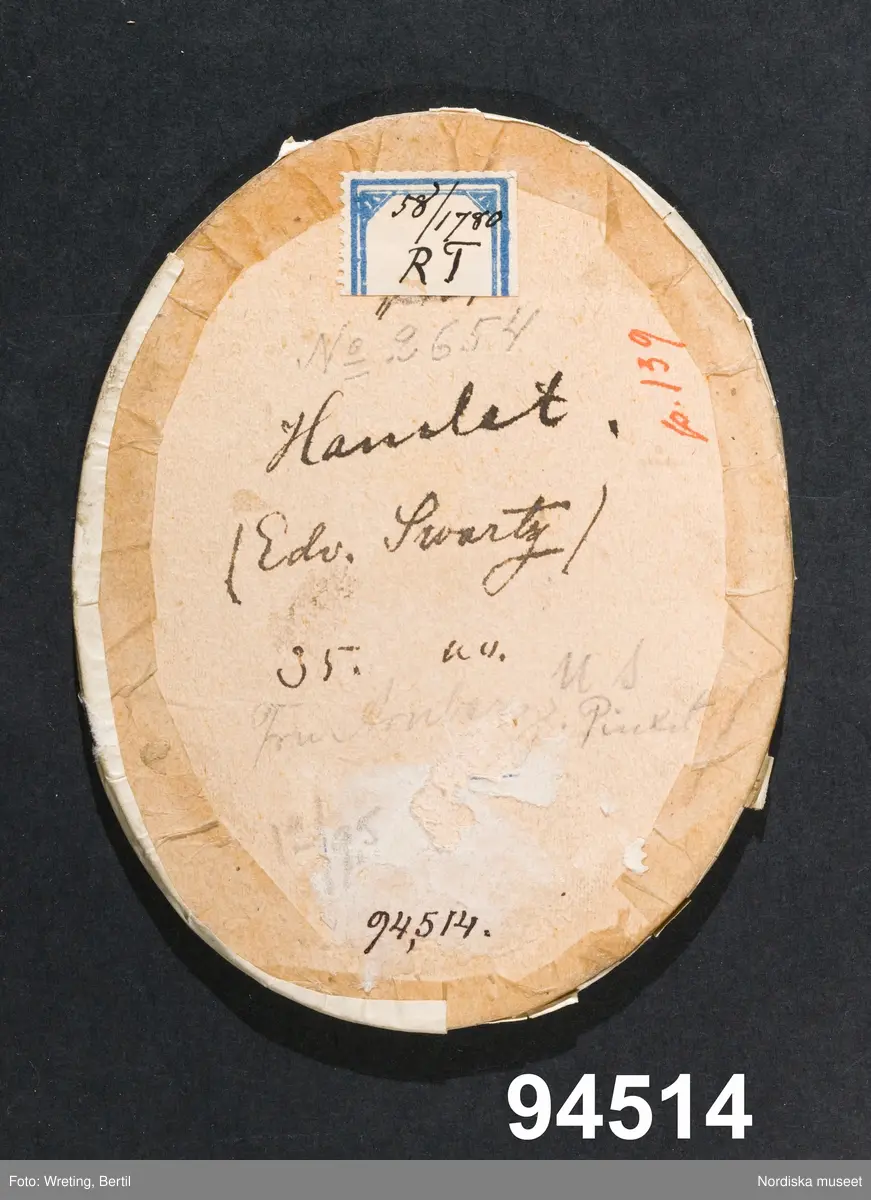 58/1780
RT
No 2654
p. 139
Hamlet.
(Edv. Swartz)
35. uu.
U S
Fru Pinxit
94,514.
94514
Foto: Wreting, Bertil
Nordiska museet